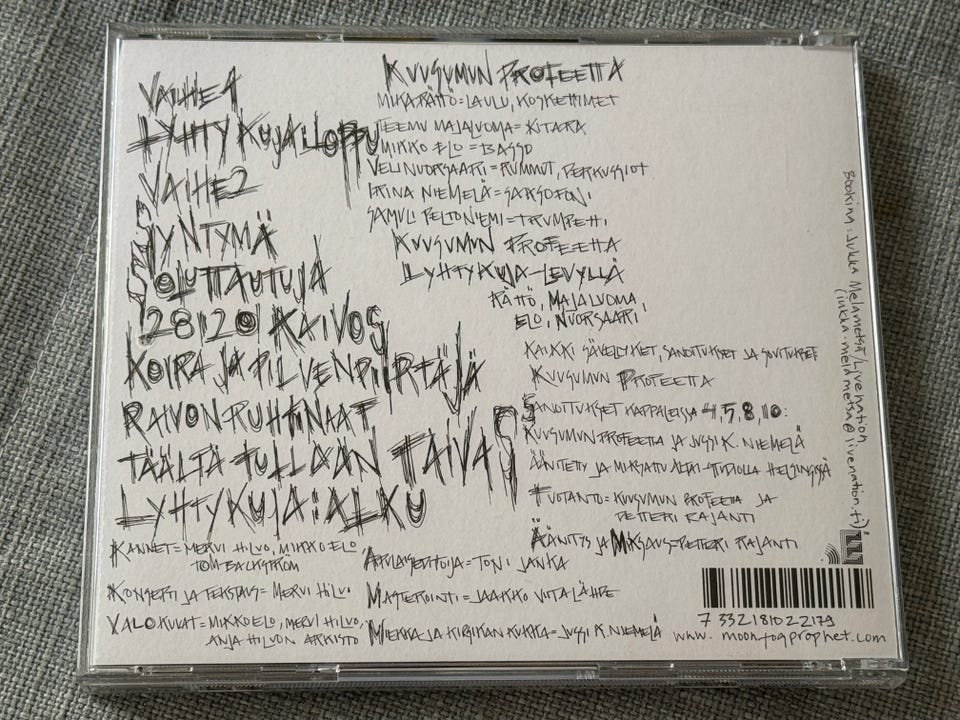 VAIHE 1
LYHTYKUJA: LOPPU
VAIHE 2
SYNTYMÄ
SOLUTTAUTUJA
28:20 KAIVOS
KOIRA JA PILVENPIIRTÄJÄ
RAIVON RUHTINAAT
TÄÄLTÄ TULLAAN TAIVAS
LYHTYKUJA: ALKU
KUUSUMUN PROFEETTA
MIKA RÄTTÖ = LAULU, KOSKETTIMET
TEEMU MAJALUOMA = KITARA
MIKKO ELO = BASSO
VELI NUORSAARI = RUMMUT, PERKUSSIOT
IRINA NIEMELÄ = SAKSOFONI
SAMULI PELTONIEMI = TRUMPETTI
KUUSUMUN PROFEETTA
LYHTYKUJA-LEVYLLÄ
RÄTTÖ, MAJALUOMA,
ELO, NUORSAARI
KAIKKI SÄVELLYKSET, SANOITUKSET JA SOVITUKSET
KUUSUMUN PROFEETTA
SANOITUKSET KAPPALEISSA 4,5,8,10:
KUUSUMUN PROFEETTA JA JUSSI K. NIEMELÄ
ÄÄNITETTY JA MIKSATTU ALTAI-STUDIOLLA HELSINGISSÄ
TUOTANTO = KUUSUMUN PROFEETTA JA
PETTERI RAJANTI
ÄÄNITYS JA MIKSAUS = PETTERI RAJANTI
KANNET = MERVI HILVO, MIKKO ELO
TOM BACKSTRÖM
KONSEPTI JA TEKSTAUS = MERVI HILVO
VALOKUVAT = MIKKO ELO, MERVI HILVO,
ANJA HILVON ARKISTO
APULAISTUOTTAJA = TONI JANKA
MASTEROINTI = JAAKKO VIITALÄHDE
MIEKKA JA KIRSIKAN KUKKA = JUSSI K. NIEMELÄ
BOOKING: JUKKA MELAMETSÄ/LIVENATION
(jukka.melametsa@livenation.fi)
7 332181022179
www.moonfogprophet.com